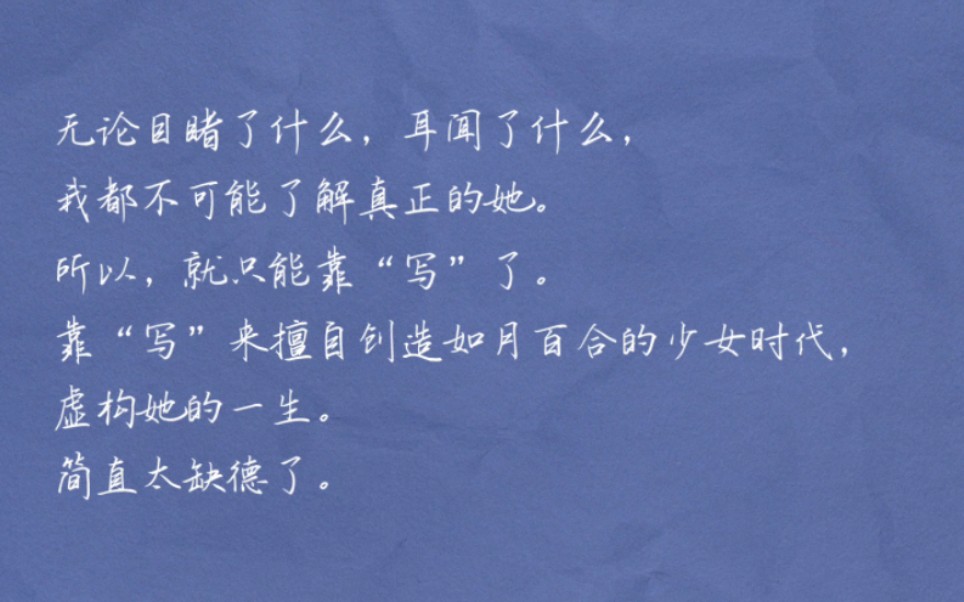 无论目睹了什么，耳闻了什么，
我都不可能了解真正的她。
所以，就只能靠“写”了。
靠“写”来擅自创造如月百合的少女时代，
虚构她的一生。
简直太缺德了。